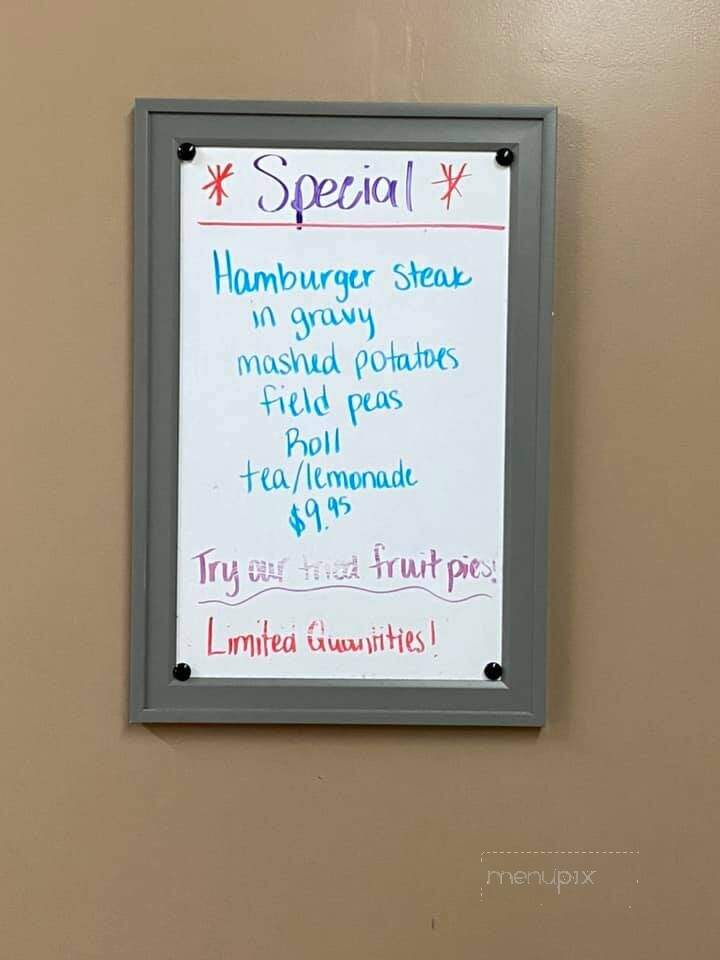 * Special *
Hamburger steak
in gravy
mashed potatoes
field peas
Roll
tea/lemonade
$9.95
Try our fried fruit pies!
Limited Quantities!
menupix